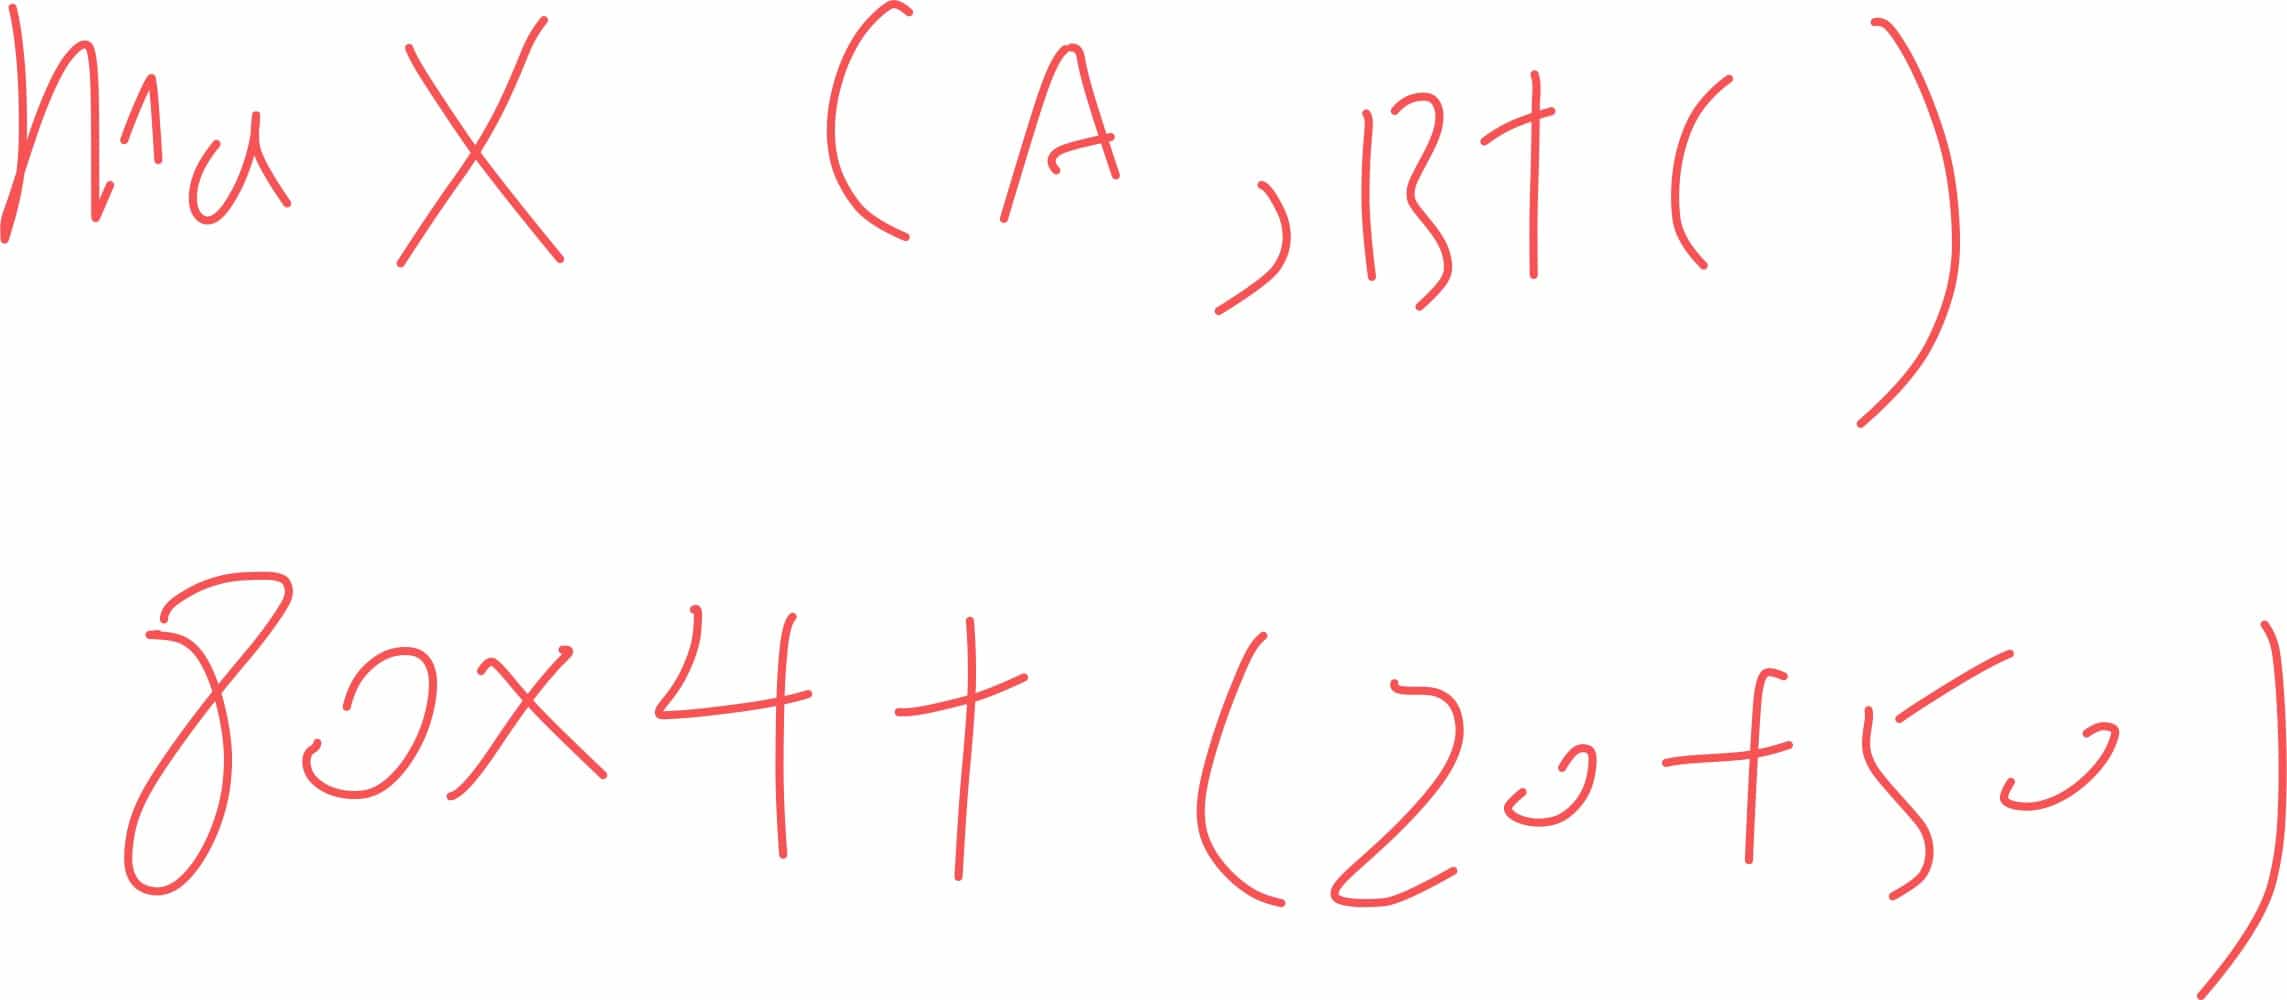 max (A, B+C)
80x4+(20+50)